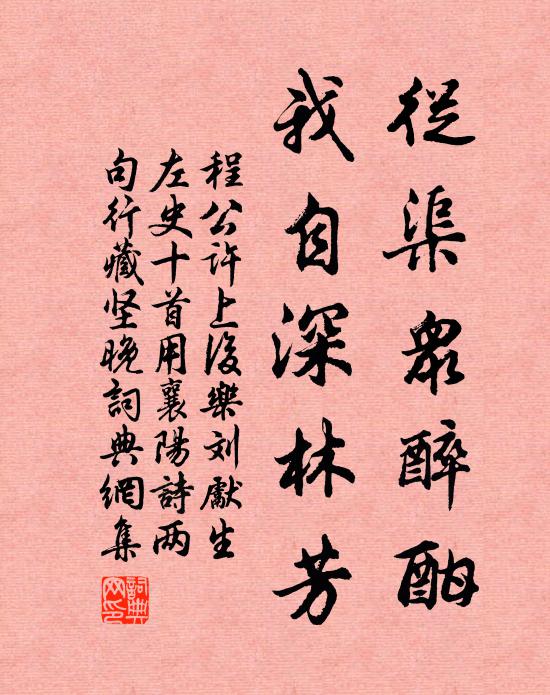 從渠眾醉酣
我自深林芳
程公许上後樂刘獻生
左史十首用襄陽詩两
句行藏坚晚詞典網集
詞典網印